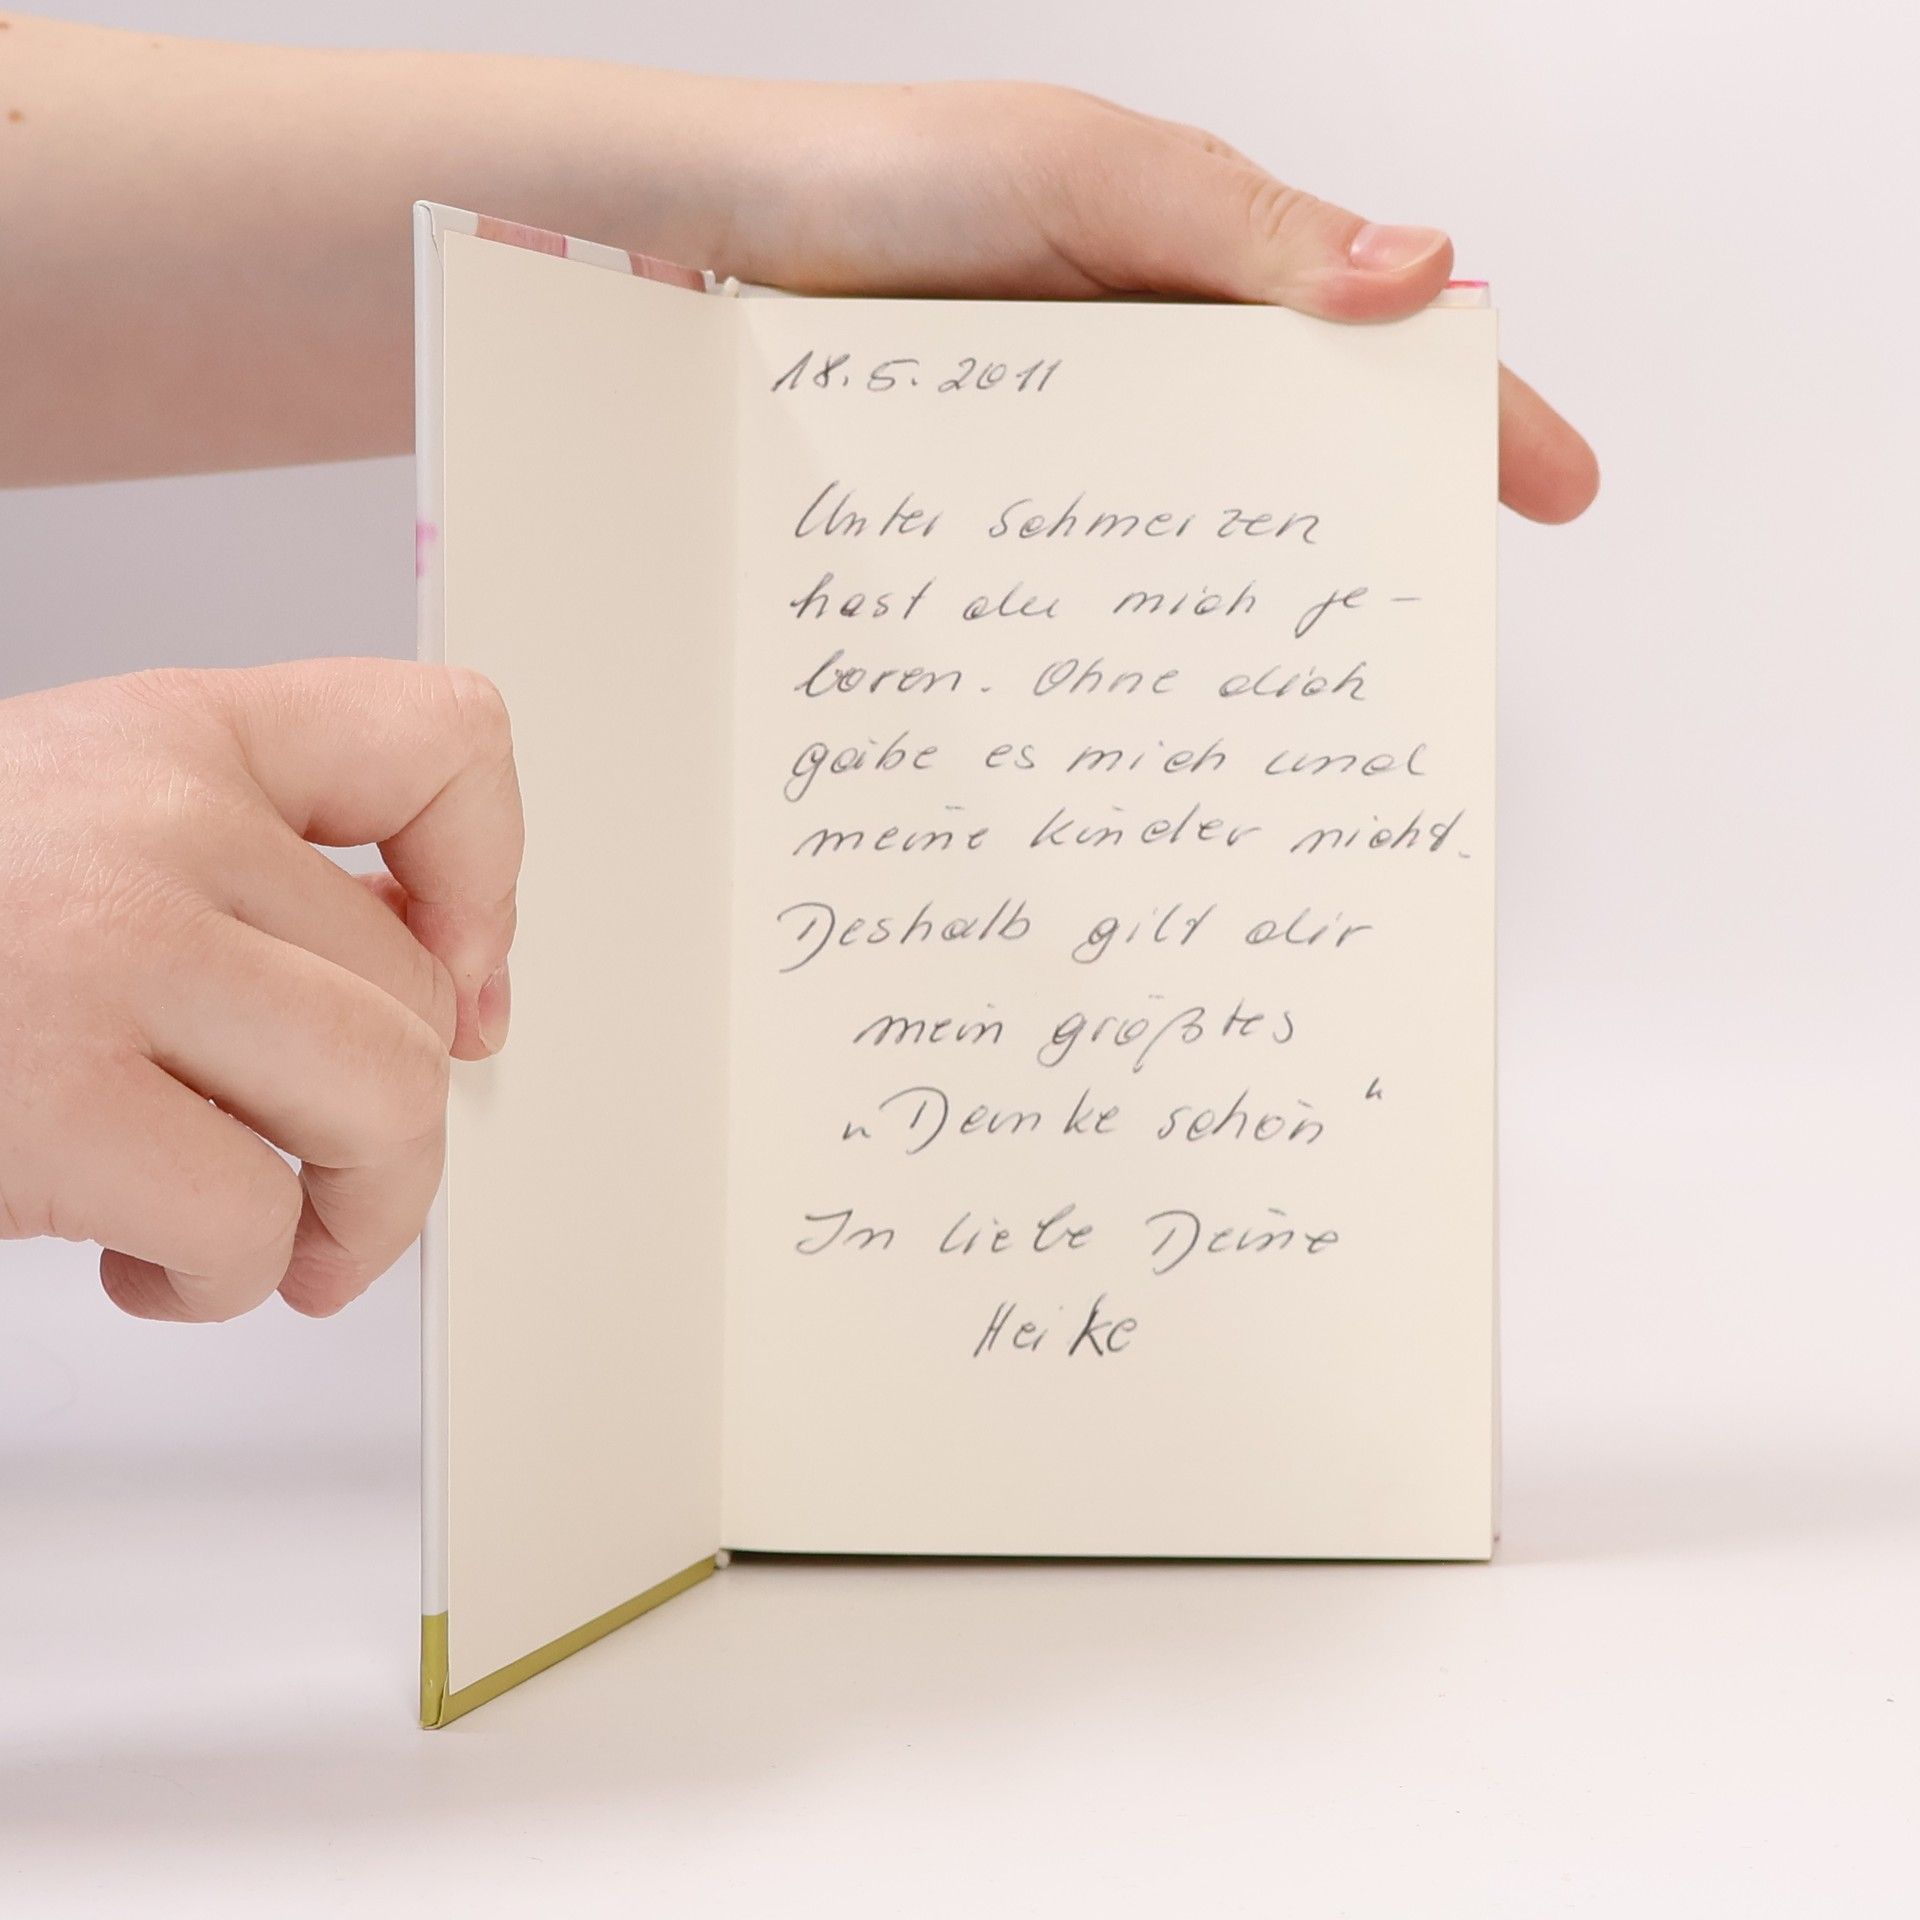 18.5.2011
Unter Schmerzen
hast du mich ge-
boren. Ohne dich
gäbe es mich und
meine Kinder nicht.
Deshalb gilt dir
mein größtes
„Danke schön“
In Liebe Deine
Heike